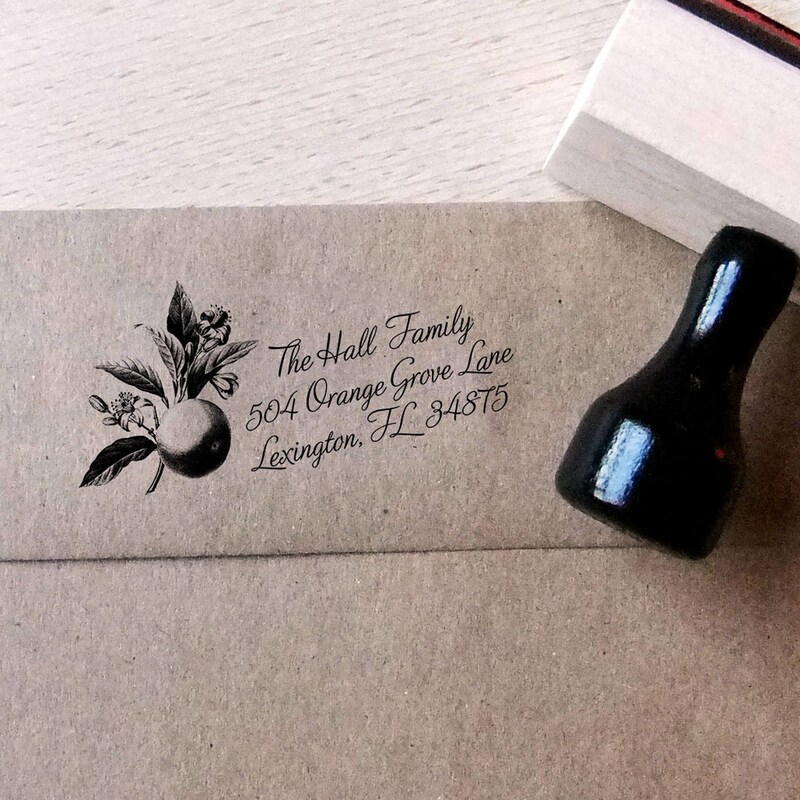 The Hall Family
504 Orange Grove Lane
Lexington, FL 34875